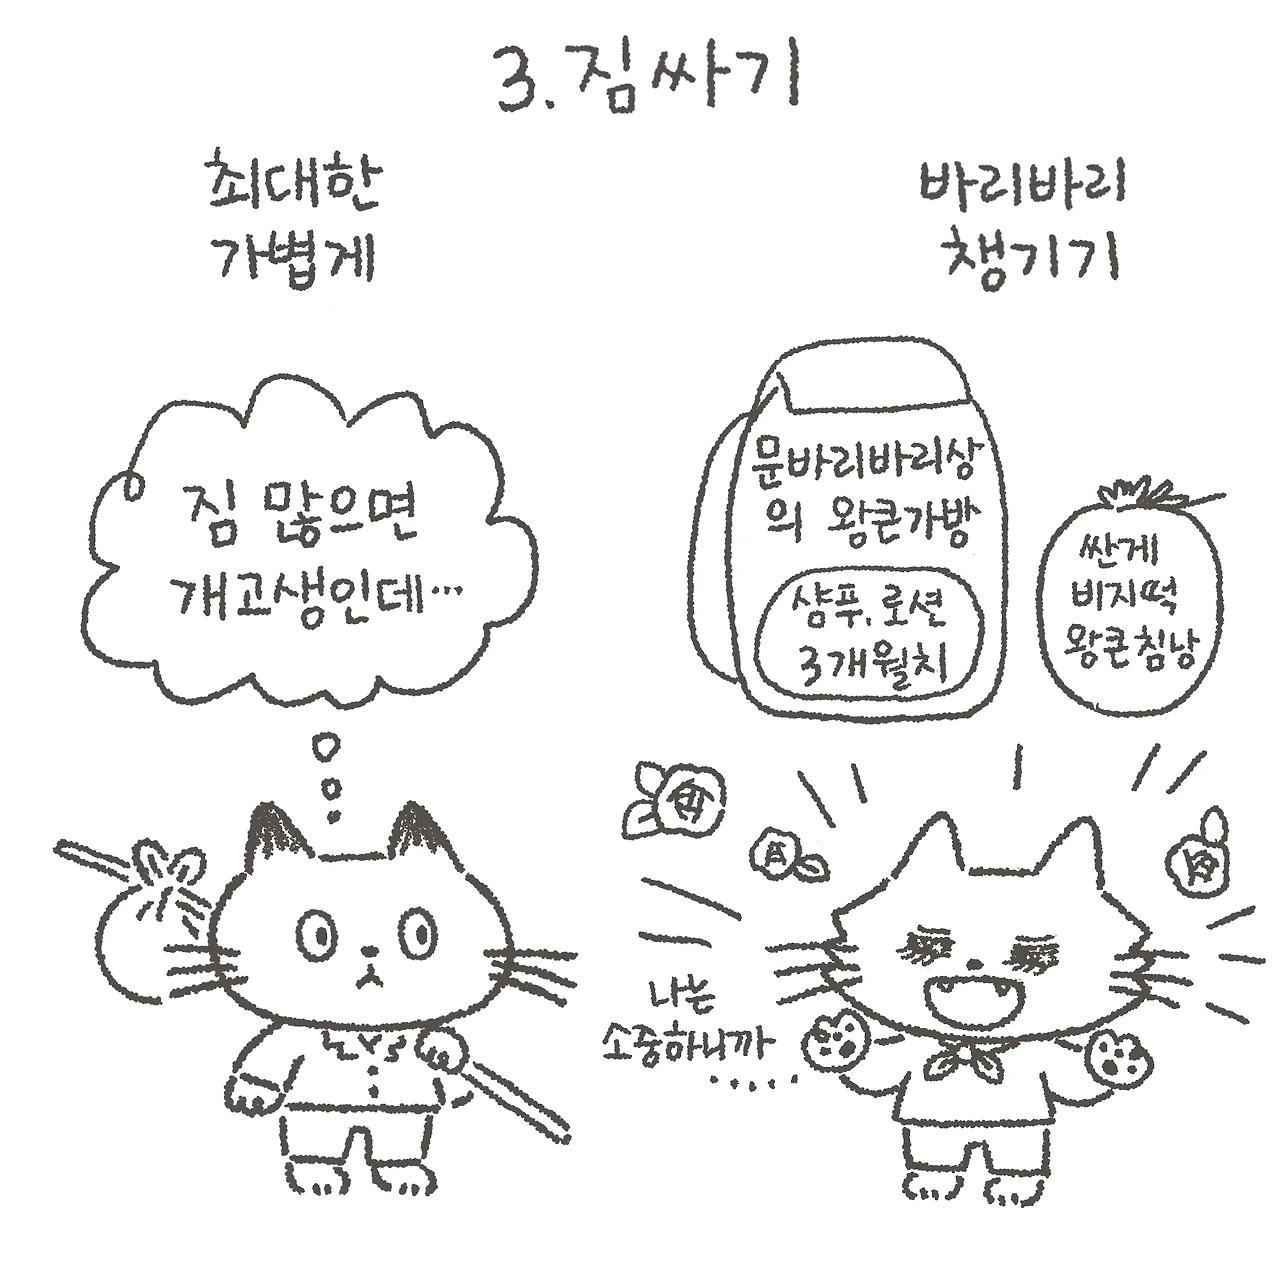 3. 짐싸기
최대한
가볍게
짐 많으면
개고생인데...
바리바리
챙기기
문바리바리상
의 왕큰가방
샴푸, 로션
3개월치
싼게
비지떡
왕큰침낭
나는
소중하니까
.....